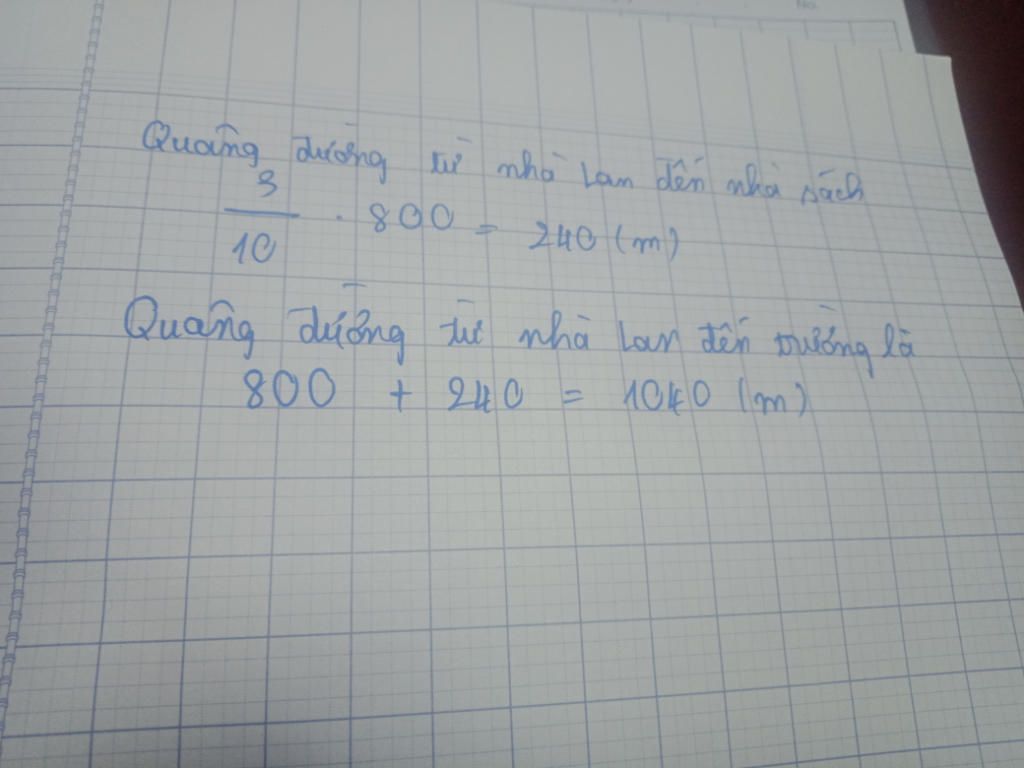 Quãng đường từ nhà Lan đến nhà sách
3/10 . 800 = 240 (m)
Quãng đường từ nhà Lan đến trường là
800 + 240 = 1040 (m)